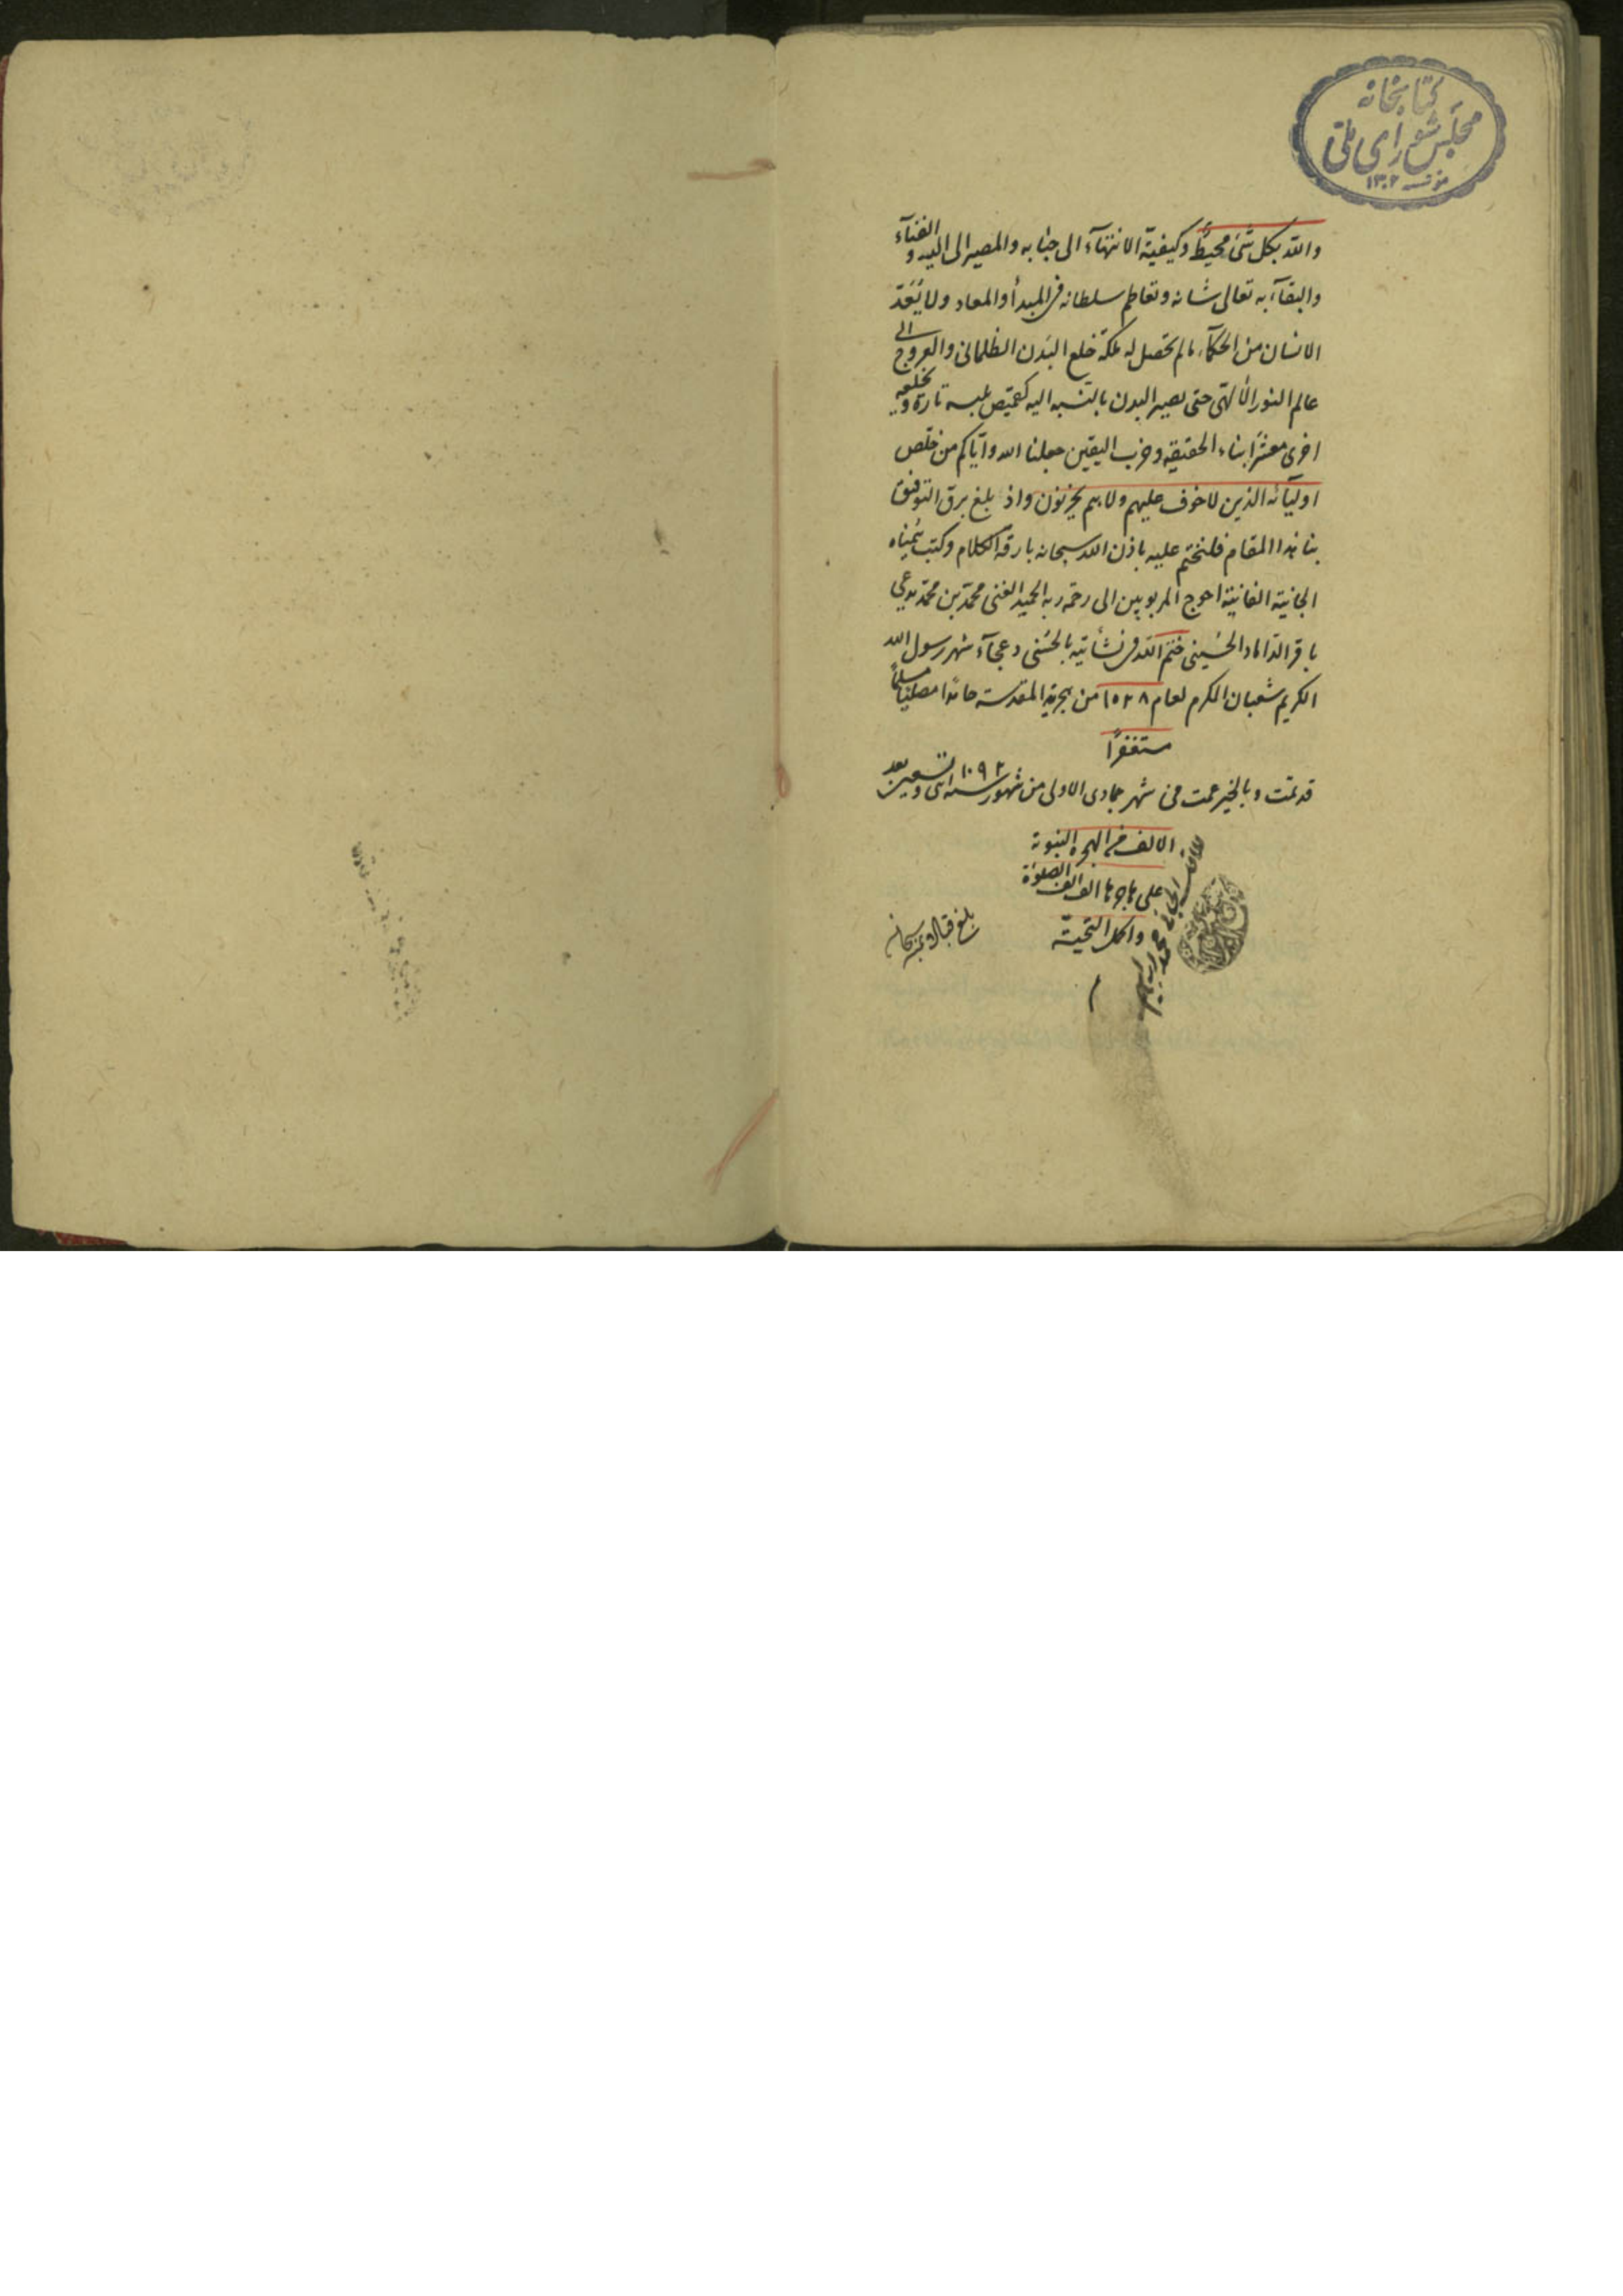 كتابخانه
مجلس شورای ملی
۱۳۰۲
والله بكل شئ محيط وكيفية الانتهآء الى جنابه والمصير اليه والفنآء
والبقآء به تعالى شانه وتعاظم سلطانه فى المبدأ والمعاد ولا يُعَدّ
الانسان من الحكمآء ما لم تحصل له ملكة خلع البَدن الظلمانى والعروج الى
عالم النور الالٰهى حتى يصير البدن بالنسبه اليه كقميص يلبسه تارة ويخلعه
اخرى معشر ابناء الحقيقه وحزب اليقين جعلنا الله واياكم من خلّص
اوليآئه الذين لا خوف عليهم ولا هم يحزنون واذ بلغ برق التوفيق
بنا هذا المقام فلنختم عليه باذن الله سبحانه بارقة الكلام وكتب بيُمناه
الجانية الفانية احوج المربوبين الى رحمة ربه الحميد الغنى محمّد بن محمّد يدعى
باقر الداماد الحسينى ختم الله فى نشأتيه بالحسنى دعجآء شهر رسول الله
الكريم شعبان المكرم لعام ۱۰۳۸ من هجرته المقدسة حامدًا مصليًا مسلمًا
مستغفرًا
قد تمت وبالخير عمت فى شهر جمادى الاولى من شهور سنه ۱۰۹۲ اثنى وتسعين بعد
الالف من الهجرة النبوية
على هاجرها الف الف الصلوة
واكمل التحيّة
م
بلغ قبالا